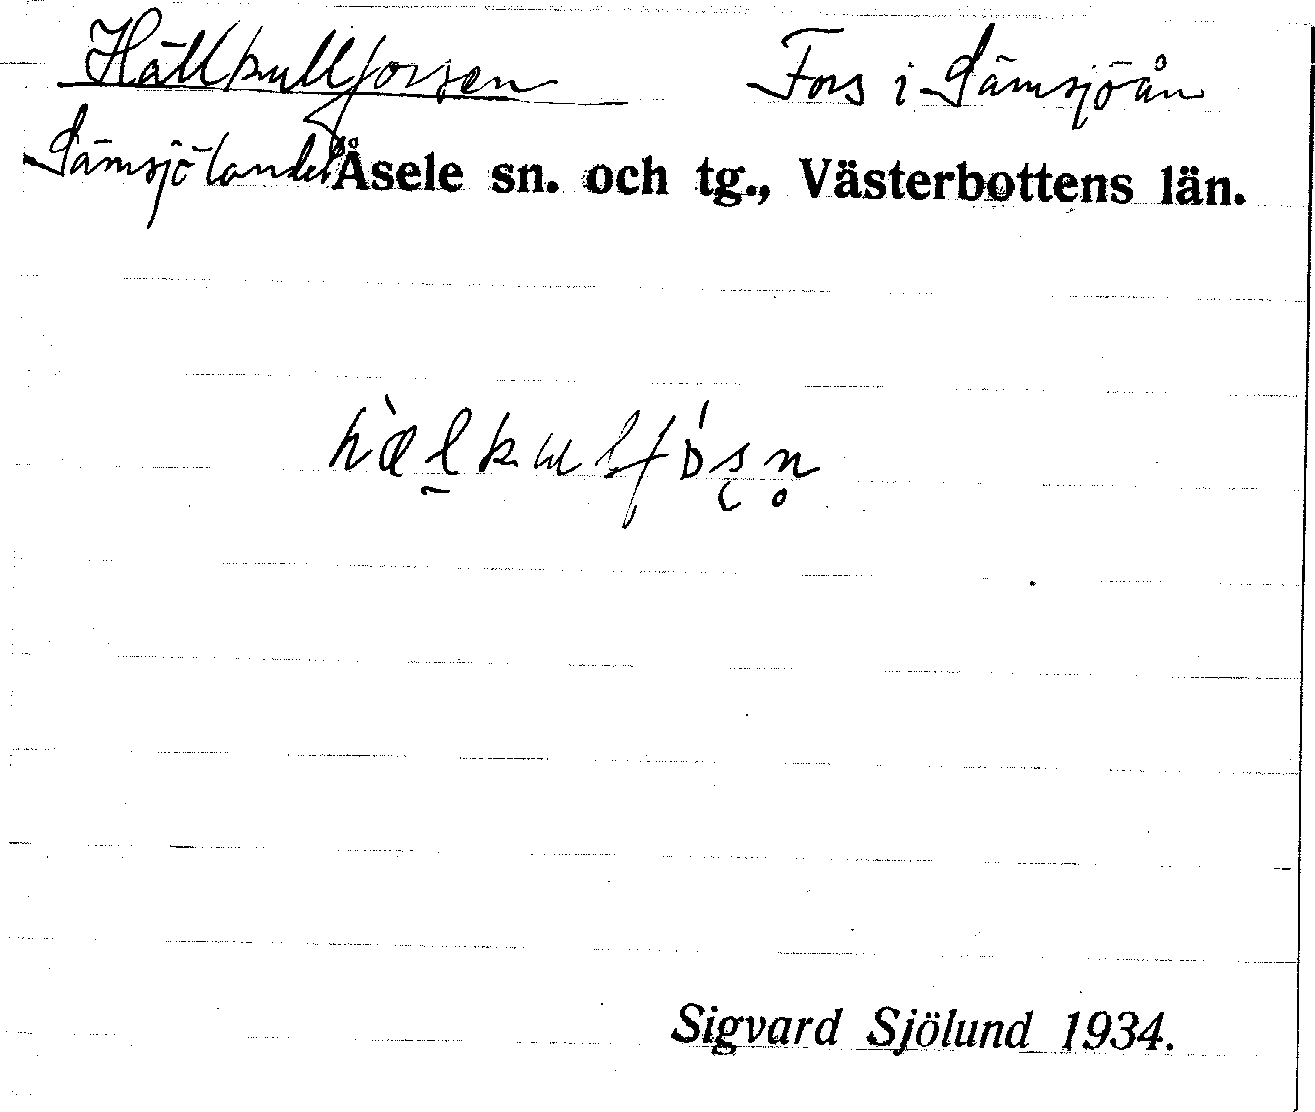 Hällkullforsen Fors i Sämsjöån
Sämsjölandet Åsele sn. och tg., Västerbottens län.
hæ̀l̠kulfɒ́ʂn̥
Sigvard Sjölund 1934.